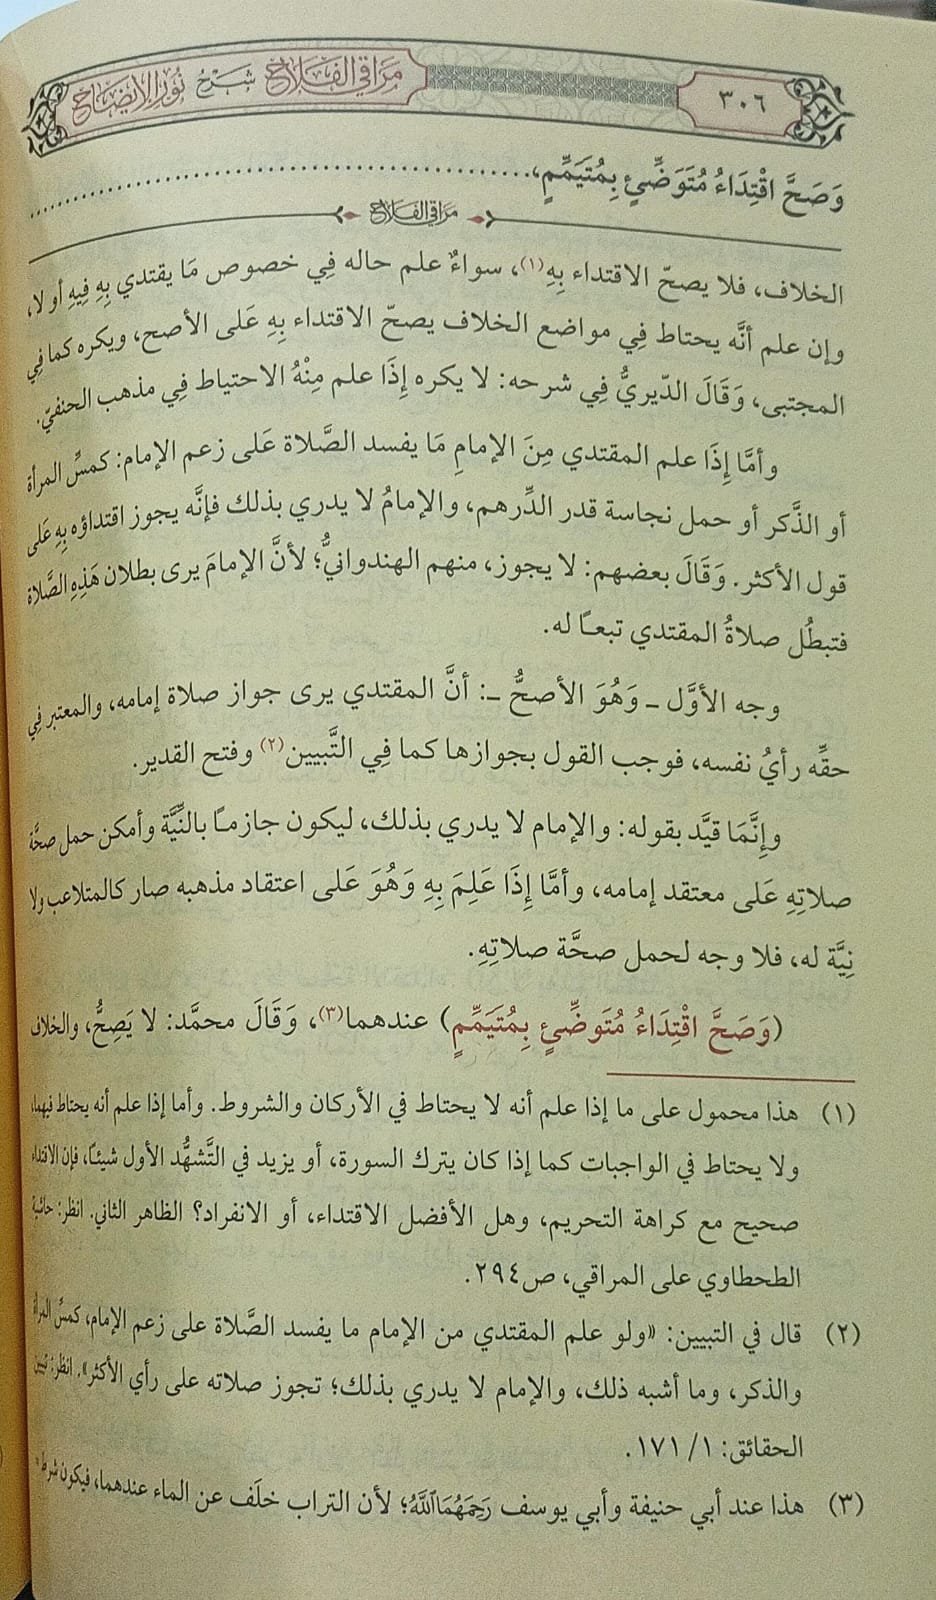 ٣٠٦
مَرَاقِي الفَلَاحِ شَرْحُ نُورِ الإِيضَاحِ
وَصَحَّ اقْتِدَاءُ مُتَوَضِّئٍ بِمُتَيَمِّمٍ، ........................................
مَرَاقِي الفَلَاحِ
الخلاف، فلا يصحّ الاقتداء بِهِ(١)، سواءٌ علم حاله فِي خصوص مَا يقتدي بِهِ فِيهِ أو لا،
وإن علم أنَّه يحتاط فِي مواضع الخلاف يصحّ الاقتداء بِهِ عَلى الأصح، ويكره كما فِي
المجتبى، وَقَالَ الدّيريُّ فِي شرحه: لا يكره إِذَا علم مِنْهُ الاحتياط فِي مذهب الحنفيّ.
وأمَّا إِذَا علم المقتدي مِنَ الإمامِ مَا يفسد الصَّلاة عَلى زعم الإمام: كمسِّ المرأة
أو الذَّكر أو حمل نجاسة قدر الدِّرهم، والإمامُ لا يدري بذلك فإنَّه يجوز اقتداؤه بِهِ عَلى
قول الأكثر. وَقَالَ بعضهم: لا يجوز، منهم الهندوانيُّ؛ لأنَّ الإمامَ يرى بطلان هَذِهِ الصَّلاة
فتبطُل صلاةُ المقتدي تبعـًا له.
وجه الأوَّل ـ وَهُوَ الأصحُّ ـ: أنَّ المقتدي يرى جواز صلاة إمامه، والمعتبر فِي
حقِّه رأيُ نفسه، فوجب القول بجوازها كما فِي التَّبيين(٢) وفتح القدير.
وإِنَّمَا قيَّد بقوله: والإمام لا يدري بذلك، ليكون جازمـًا بالنِّيَّة وأمكن حمل صحَّة
صلاتِهِ عَلى معتقد إمامه، وأمَّا إِذَا عَلِمَ بِهِ وَهُوَ عَلى اعتقاد مذهبه صار كالمتلاعب ولا
نِيَّة له، فلا وجه لحمل صحَّة صلاتِهِ.
(وَصَحَّ اقْتِدَاءُ مُتَوَضِّئٍ بِمُتَيَمِّمٍ) عندهما(٣)، وَقَالَ محمَّد: لا يَصِحُّ، والخلاف
(١) هذا محمول على ما إذا علم أنه لا يحتاط في الأركان والشروط. وأما إذا علم أنه يحتاط فيهما،
ولا يحتاط في الواجبات كما إذا كان يترك السورة، أو يزيد في التَّشهُّد الأول شيئـًا، فإن الاقتداء
صحيح مع كراهة التحريم، وهل الأفضل الاقتداء، أو الانفراد؟ الظاهر الثاني. انظر: حاشية
الطحطاوي على المراقي، ص٢٩٤.
(٢) قال في التبيين: «ولو علم المقتدي من الإمام ما يفسد الصَّلاة على زعم الإمام، كمسِّ المرأة
والذكر، وما أشبه ذلك، والإمام لا يدري بذلك؛ تجوز صلاته على رأي الأكثر». انظر: تبيين
الحقائق: ١/ ١٧١.
(٣) هذا عند أبي حنيفة وأبي يوسف رَحِمَهُمَااللَّهُ؛ لأن التراب خلَف عن الماء عندهما، فيكون شرط